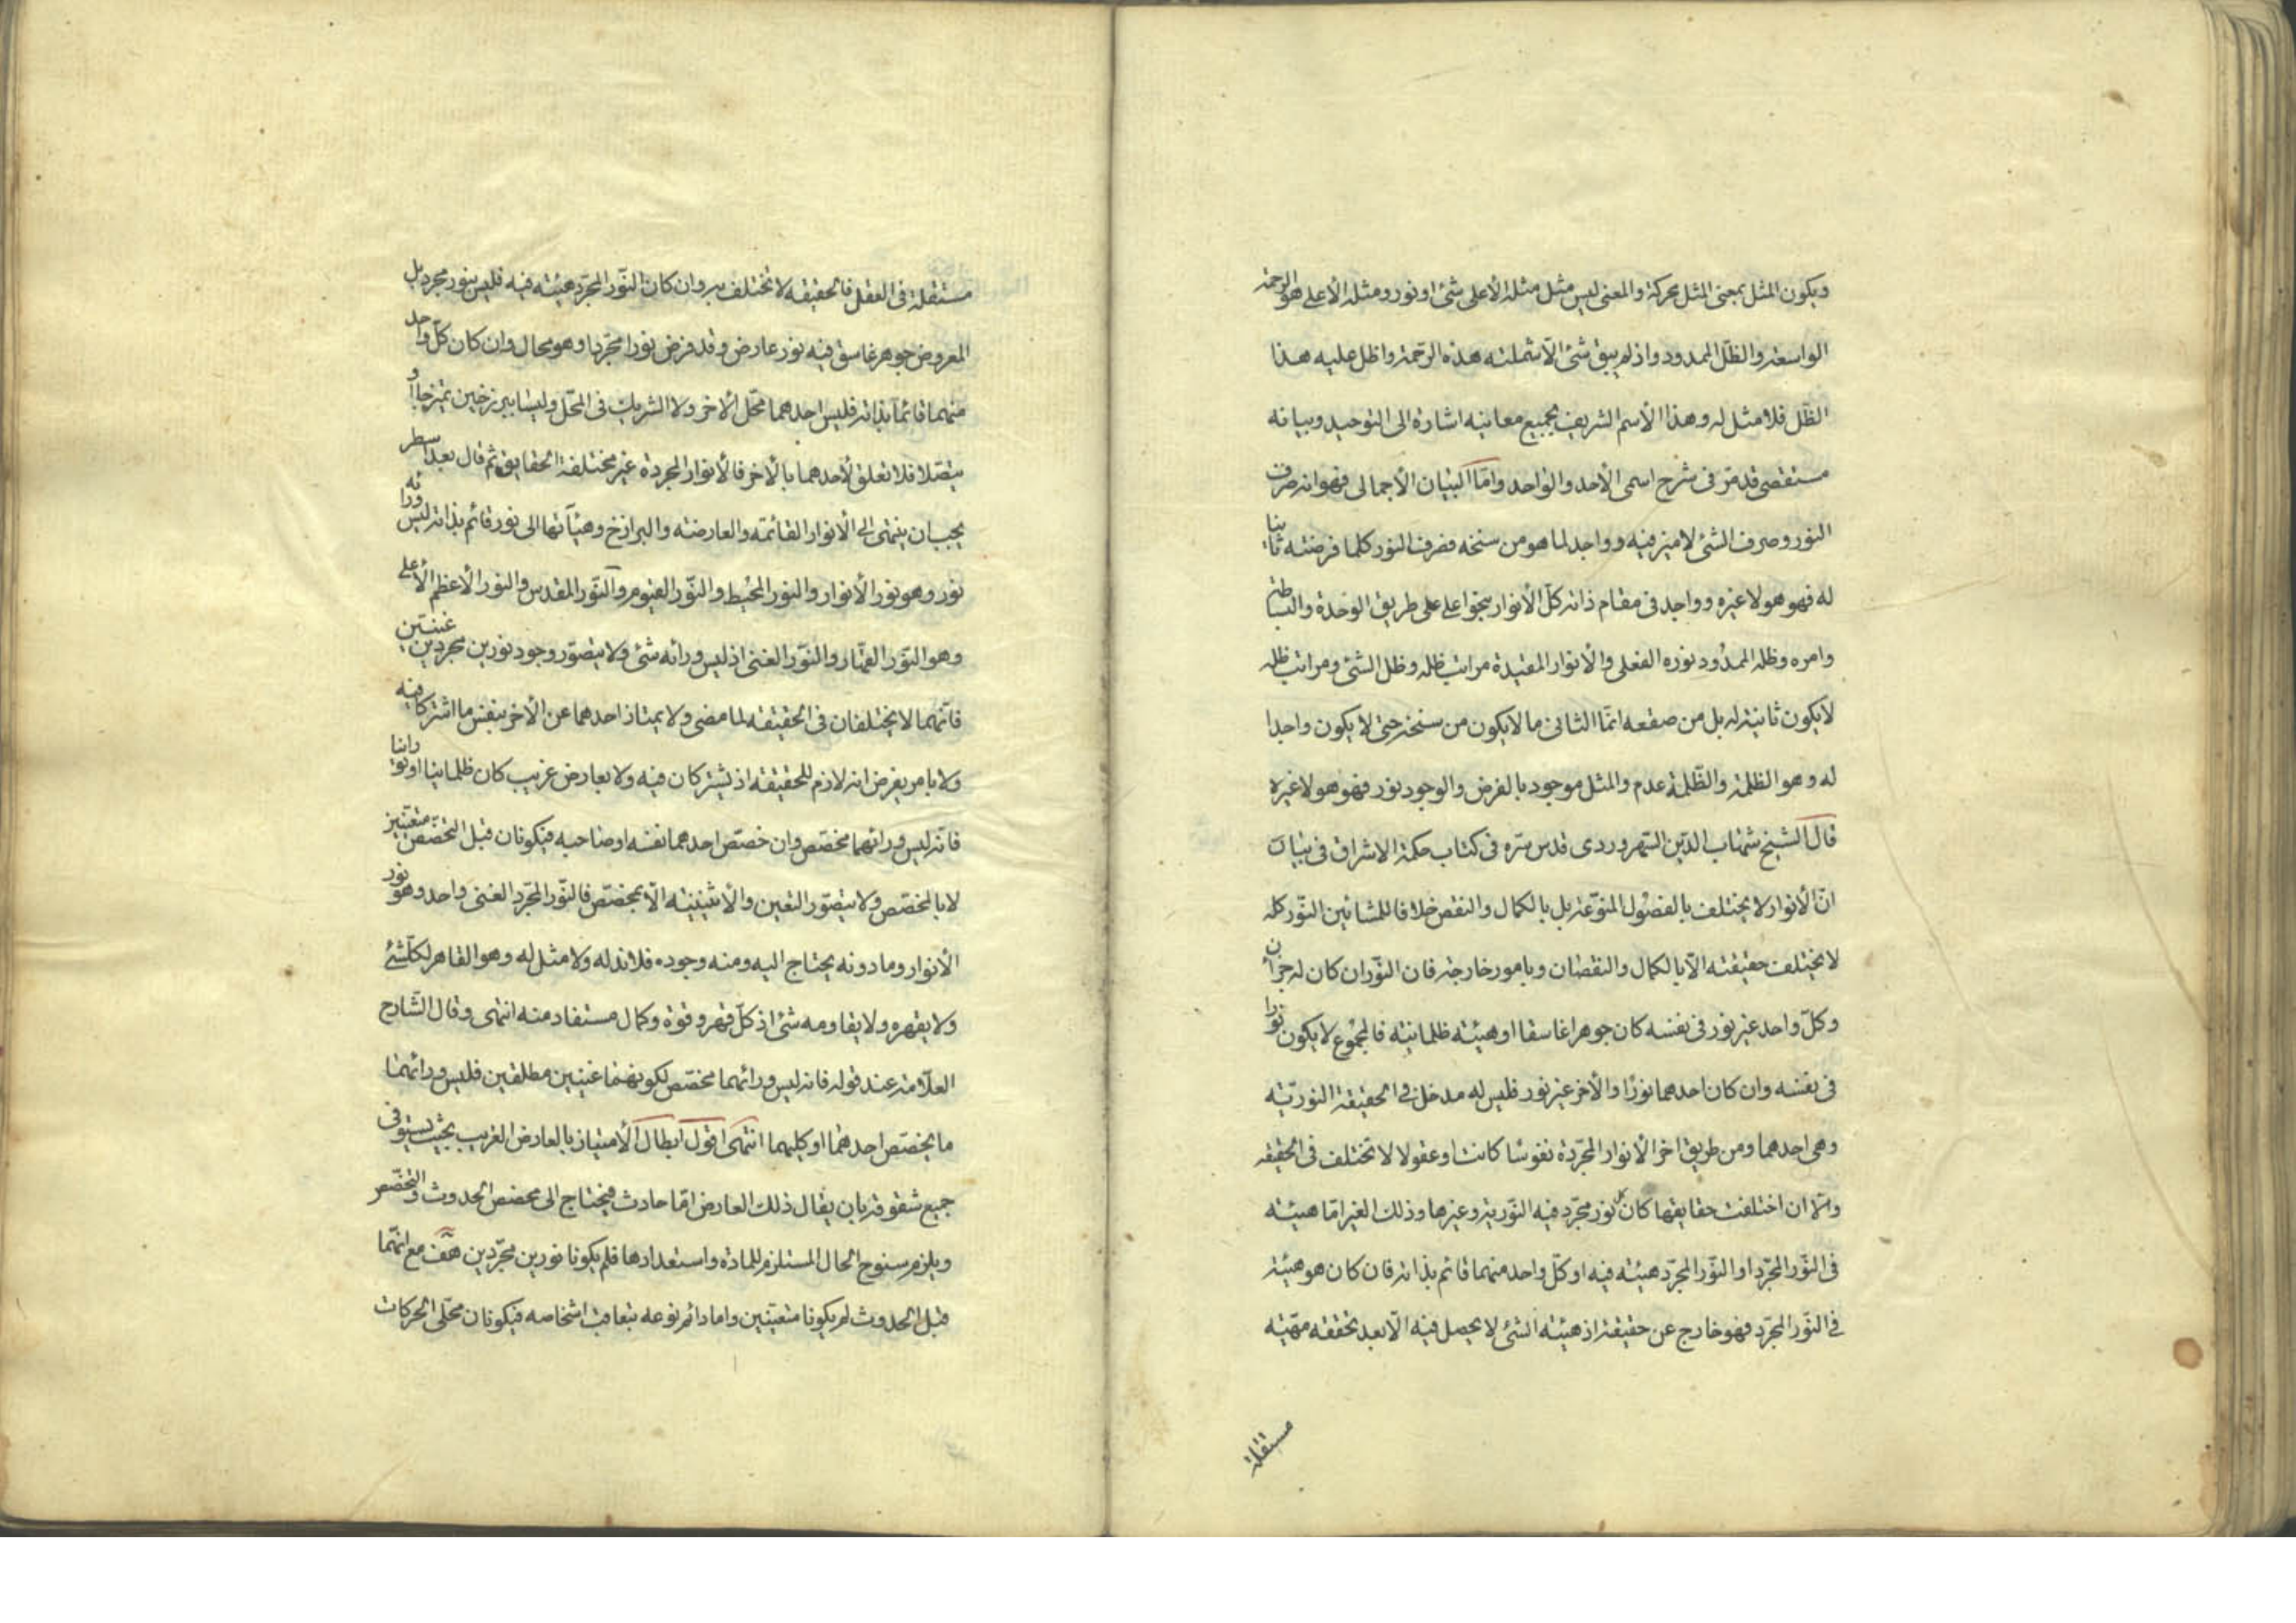 ويكون المثل بمعنى المثل محركة والمعنى ليس مثل مثله الأعلى شئ او نور ومثله الأعلى هو الرحمة
الواسعة والظل الممدود واذ لم يبق شئ الّا شملته هذه الرحمة واظل عليه هذا
الظل فلا مثل له وهذا الأسم الشريف بجميع معانيه اشارة الى التوحيد وبيانه
مستقصى قد مرّ فى شرح اسمى الأحد والواحد وامّا البيان الأجمالى فهو انه صرف
النور وصرف الشئ لا ميز فيه وواجد لما هو من سنخه فصرف النور كلما فرضته ثانيا
له فهو هو لا غيره وواجد فى مقام ذاته كلّ الأنوار بنحو اعلى على طريق الوحدة والبساطة
وامره وظله الممدود نوره الفعلى والأنوار المقيدة مراتب ظله وظل الشئ ومراتب ظله
لا يكون ثانية له بل من صقعه انّما الثانى ما لا يكون من سنخه حتى لا يكون واجدا
له وهو الظلمة والظّلمة عدم والمثل موجود بالفرض والوجود نور فهو هو لا غيره
قال الشيخ شهاب الدّين السّهروردى قدس سرّه فى كتاب حكمة الاشراق فى بيان
انّ الأنوار لا يختلف بالفصول المنوّعة بل بالكمال والنقص خلافا للمشائين النّور كله
لا يختلف حقيقته الّا بالكمال والنقصان وبامور خارجة فان النّور ان كان له جزأن
وكلّ واحد غير نور فى نفسه كان جوهرا غاسقا او هيئة ظلمانية فالمجموع لا يكون نورا
فى نفسه وان كان احدهما نورًا والأخر غير نور فليس له مدخل فى الحقيقة النوريّة
وهى احدهما ومن طريق اخر الأنوار المجرّدة نفوسًا كانت او عقولا لا تختلف فى الحقيقة
والّا ان اختلفت حقايقها كان كل نور مجرّد فيه النّورية وغيرها وذلك الغير امّا هيئة
فى النّور المجرّد او النّور المجرّد هيئة فيه او كلّ واحد منهما قائم بذاته فان كان هو هيئة
فى النّور المجرّد فهو خارج عن حقيقة اذ هيئة الشئ لا يحصل فيه الّا بعد تحققه مهيّة
مستقلة
مستقلة فى العقل فالحقيقة لا تختلف به وان كان النّور المجرّد هيئة فيه فليس بنور مجرد بل
المعروض جوهر غاسق فيه نور عارض وقد فرض نورا مجرّدا وهو محال وان كان كلّ واحد
منهما قائما بذاته فليس احدهما محّل الاخر ولا الشريك فى المحّل وليسا ببرزخين يمتزجا او
يتصّلا فلا تعلق لأحدهما بالأخر فالأنوار المجردة غير مختلفة الحقايق ثم قال بعد اسطر
يجب ان ينتهى الى الأنوار القائمة والعارضة والبرازخ وهيآتها الى نور قائم بذاته ليس ورائه
نور وهو نور الأنوار والنور المحيط والنّور القيوم والنّور المقدس والنور الأعظم الأعلى
وهو النّور القهّار والنّور الغنى اذ ليس ورائه شئ ولا يتصوّر وجود نورين مجردين غنيّين
فانّهما لا يختلفان فى الحقيقة لما مضى ولا يمتاز احدهما عن الأخر بنفس ما اشتركا فيه
ولا بامر يفرض انه لازم للحقيقة اذ يشتركان فيه ولا بعارض غريب كان ظلمانيا او نورانيا
فانّه ليس ورائهما مخصّص وان خصّص احدهما نفسه او صاحبه فيكونان قبل التخصّص متعيّنين
لا بالمخصّص ولا يتصوّر التعين والأثنينيّة الّا بمخصّص فالنّور المجّرد الغنى واحد وهو نور
الأنوار وما دونه يحتاج اليه ومنه وجوده فلا ند له ولا مثل له وهو القاهر لكلّ شئ
ولا يقهره ولا يقاومه شئ اذ كلّ قهر وقوّة وكمال مستفاد منه انتهى وقال الشّارح
العلّامة عند قوله فانه ليس ورائهما مخصّص لكونهما غنيّين مطلقين فليس ورائهما
ما يخصّص احدهما او كليهما انتهى اقول ابطال الأمتياز بالعارض الغريب بحيث يستوفى
جميع شقوقه بان يقال ذلك العارض امّا حادث فيحتاج الى مخصّص الحدوث والتخصّص
ويلزم سنوح الحال المستلزم للمادّة واستعدادها فلم يكونا نورين مجرّدين هف مع انّهما
قبل الحدوث لم يكونا متعيّنين واما دائم نوعه بتعاقب اشخاصه فيكونان محلّى الحركات